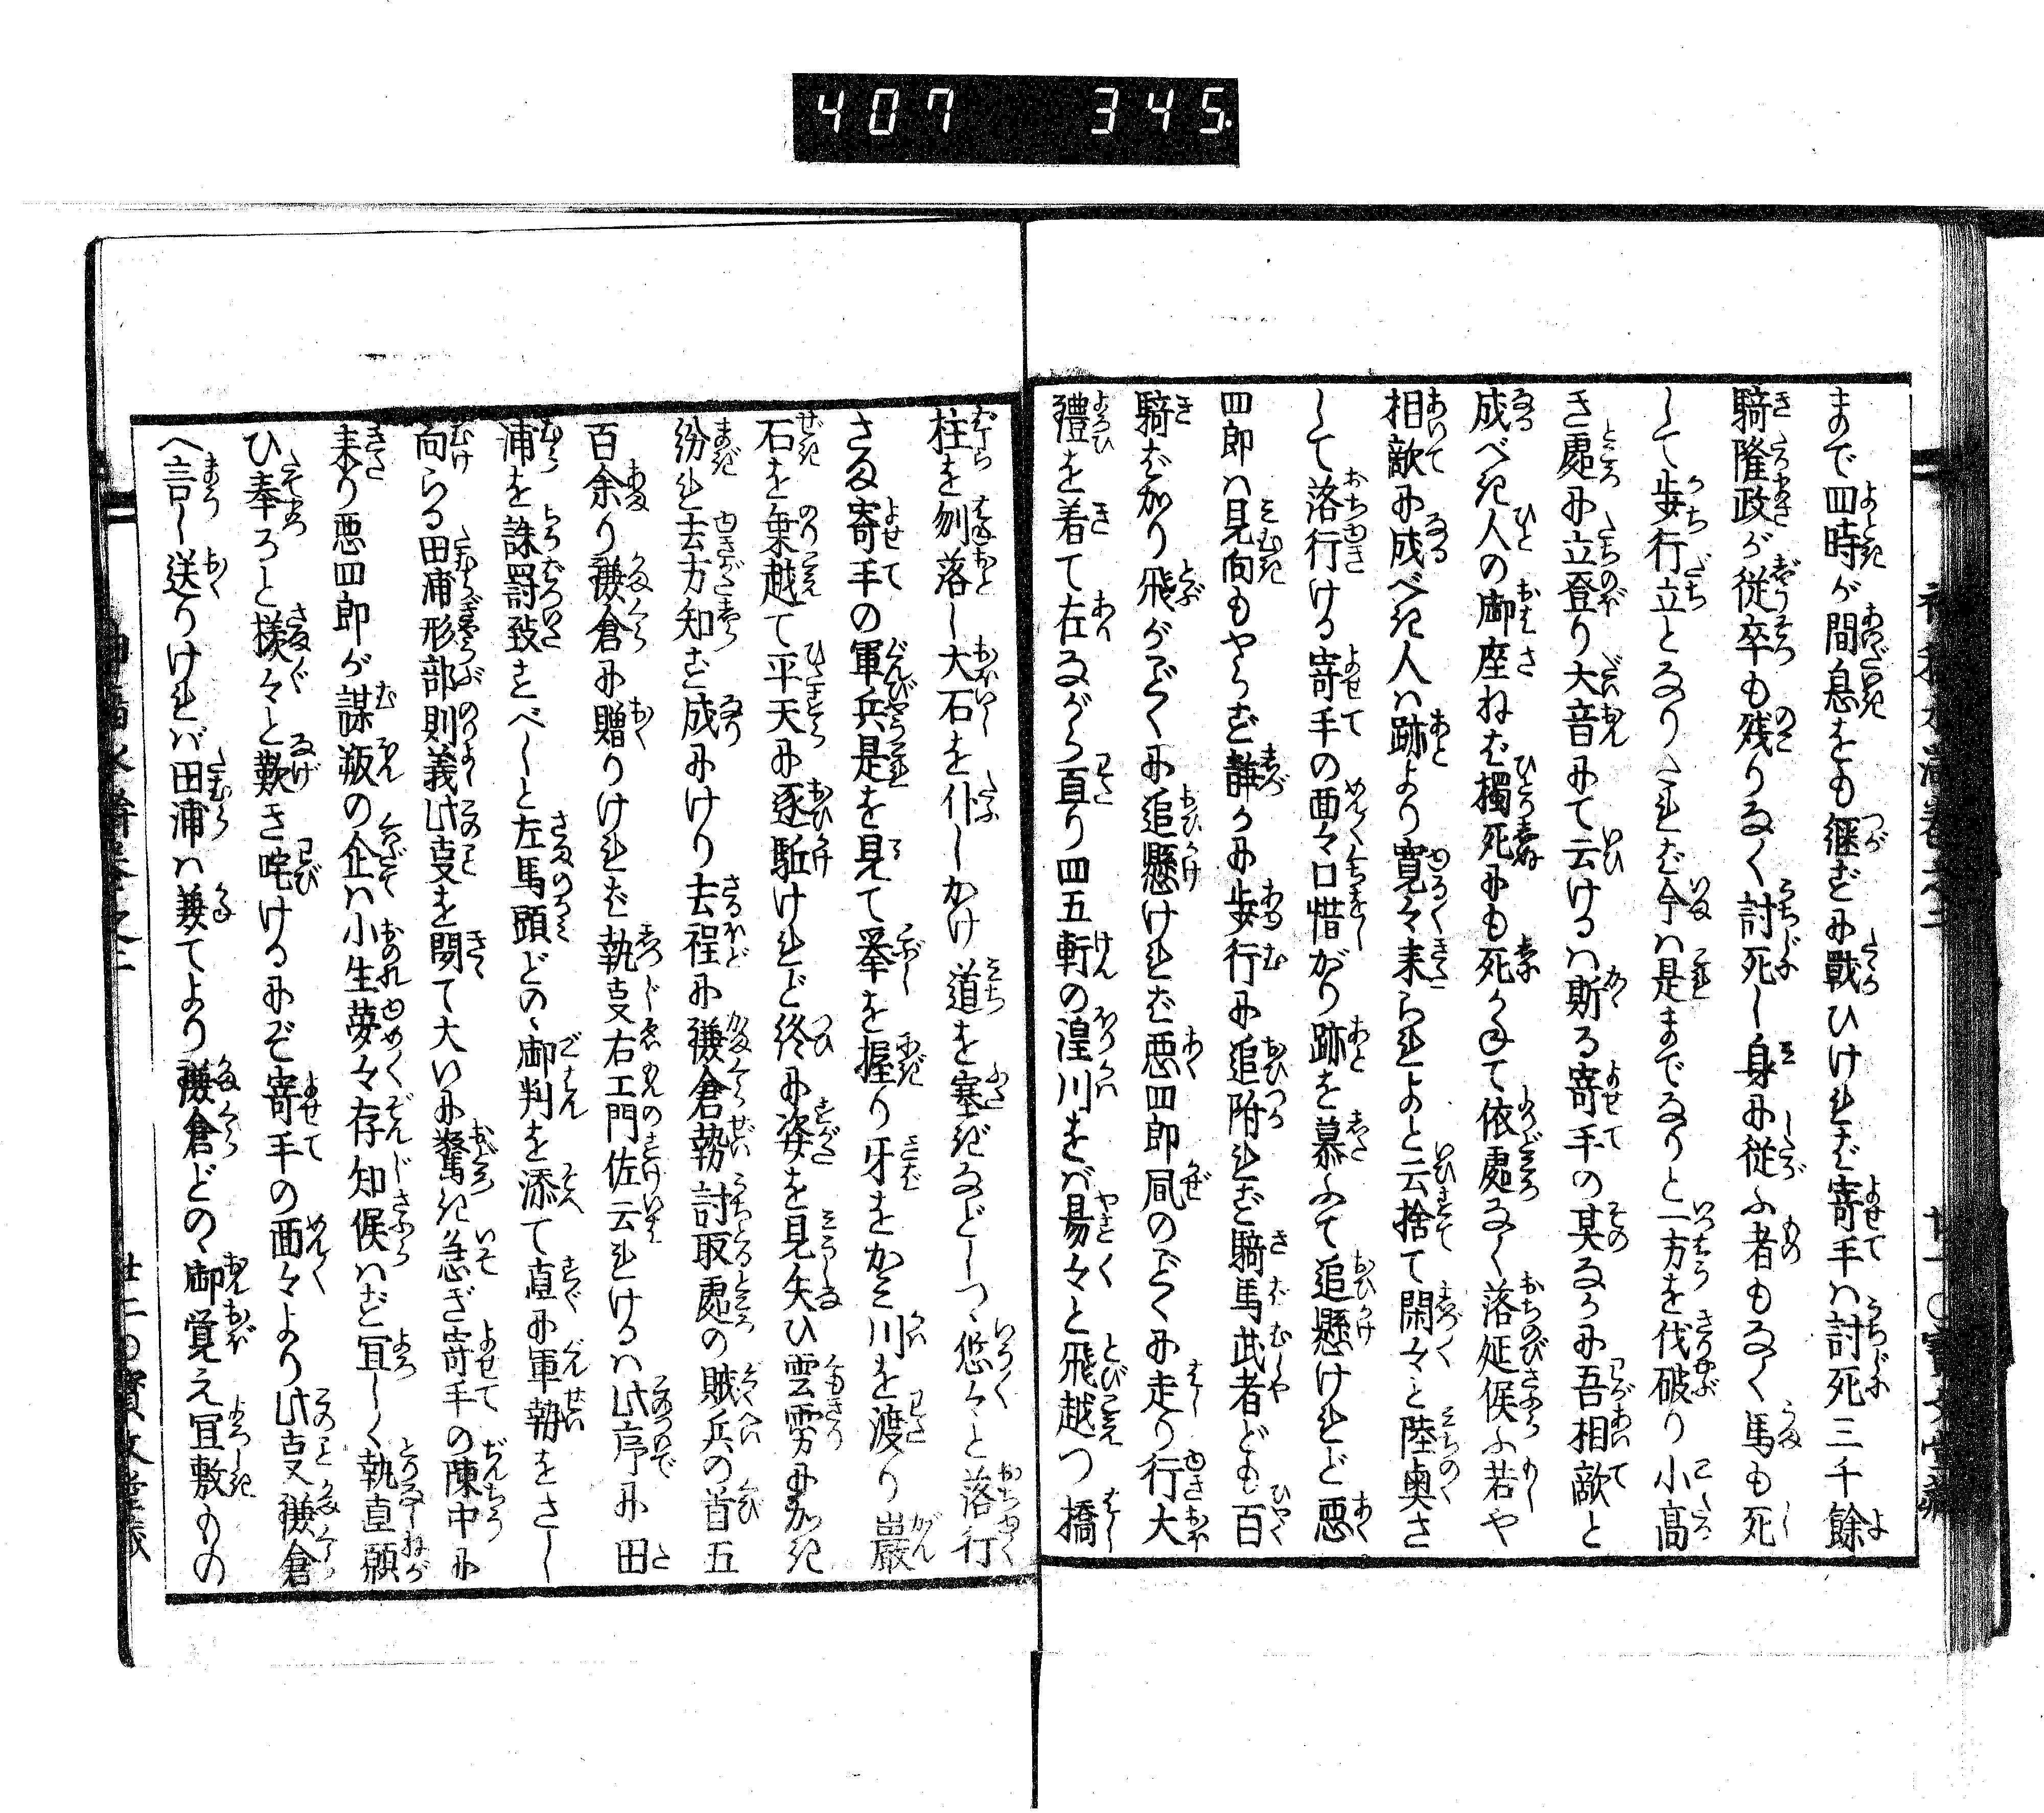 407 345.
まで四時が間息をも継ずに戦ひければ寄手は討死三千餘
騎隆政が従卒も残りなく討死し身に従ふ者もなく馬も死
して歩行立となりたれば今は是までなりと一方を伐破り小高
き處に立登り大音にて云けるは斯る寄手の其なかに吾相敵と
成べき人の御座ねば獨死にも死かねて依處なく落延候ふ若や
相敵に成べき人は跡より寛々来られよと云捨て閑々と陸奥さ
して落行ける寄手の面々口惜がり跡を慕ふて追懸けれど悪
四郎は見向もやらず静かに歩行に追附れば騎馬武者ども百
騎ばかり飛がごとくに追懸ければ悪四郎風のごとくに走り行大
禮を着て在ながら亘り四五軒の湟川をば易々と飛越つ橋
柱を刎落し大石を仆しかけ道を塞ぎなどしつゝ悠々と落行
さる寄手の軍兵是を見て拳を握り牙をかみ川を渡り巖
石を乗越て平天に逐駈けれど終に姿を見失ひ雲雰にかき
紛れ去方知ず成にけり去程に鎌倉勢討取處の賊兵の首五
百余り鎌倉に贈りければ執事右エ門佐云れけるは此序に田
浦を誅罸致すべしと左馬頭どのゝ御判を添て直に軍勢をさし
向らる田浦形部則義此事を聞て大いに驚き急ぎ寄手の陳中に
来り悪四郎が謀叛の企は小生夢々存知候はず宜しく執直願
ひ奉ろと様々と歎き咤けるにぞ寄手の面々より此事鎌倉
へ言し送りければ田浦は兼てより鎌倉どのゝ御覚え宜敷もの
廿二〇寳文堂蔵